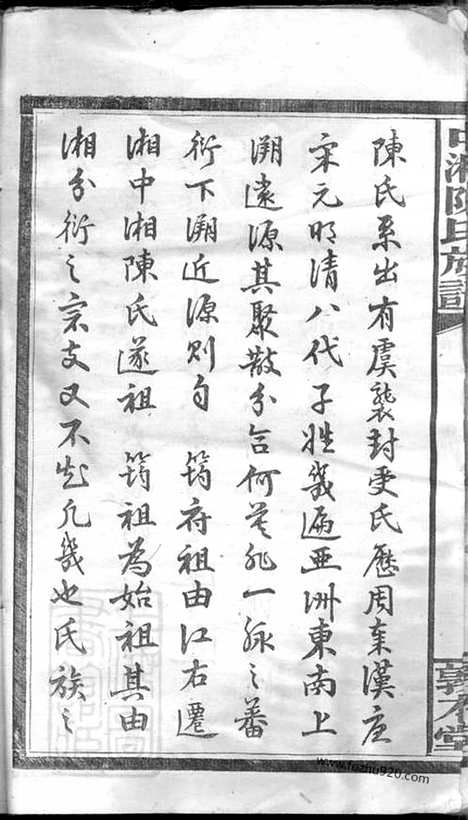 中湘陳氏族譜
敦本堂
陳氏系出有虞襲封受氏歷周秦漢唐
宋元明清八代子姓幾遍亞洲東南上
溯遠源其聚散分合何莫非一脉之蕃
衍下溯近源則自 筠府祖由江右遷
湘中湘陳氏遂祖 筠祖為始祖其由
湘分衍之宗支又不知凡幾也氏族之
www.fuzhu920.com